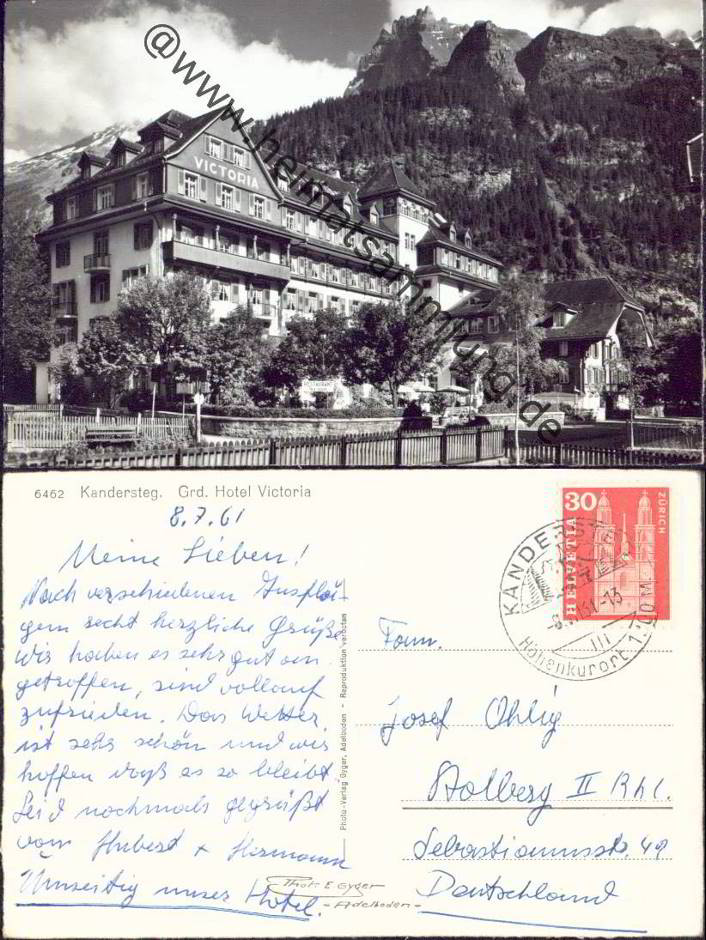 @www.heimatsammlung.de
VICTORIA
RESTAURANT
6462 Kandersteg. Grd. Hotel Victoria
8.7.61
Meine Lieben!
Nach verschiedenen Ausflü-
gen recht herzliche Grüße
Wir haben es sehr gut an
getroffen, sind vollauf
zufrieden. Das Wetter
ist sehr schön und wir
hoffen daß es so bleibt
Seid nochmals gegrüßt
von Hubert + Hermann
Umseitig unser Hotel.
Photo-Verlag Gyger, Adelboden - Reproduktion verboten
Phot. E Gyger
- Adelboden -
30
HELVETIA
ZÜRICH
KANDERSTEG
61-13
Höhenkurort 1200 M.
Fam.
Josef Ohlig
Stolberg II Rhl.
Sebastianusstr. 49
Deutschland